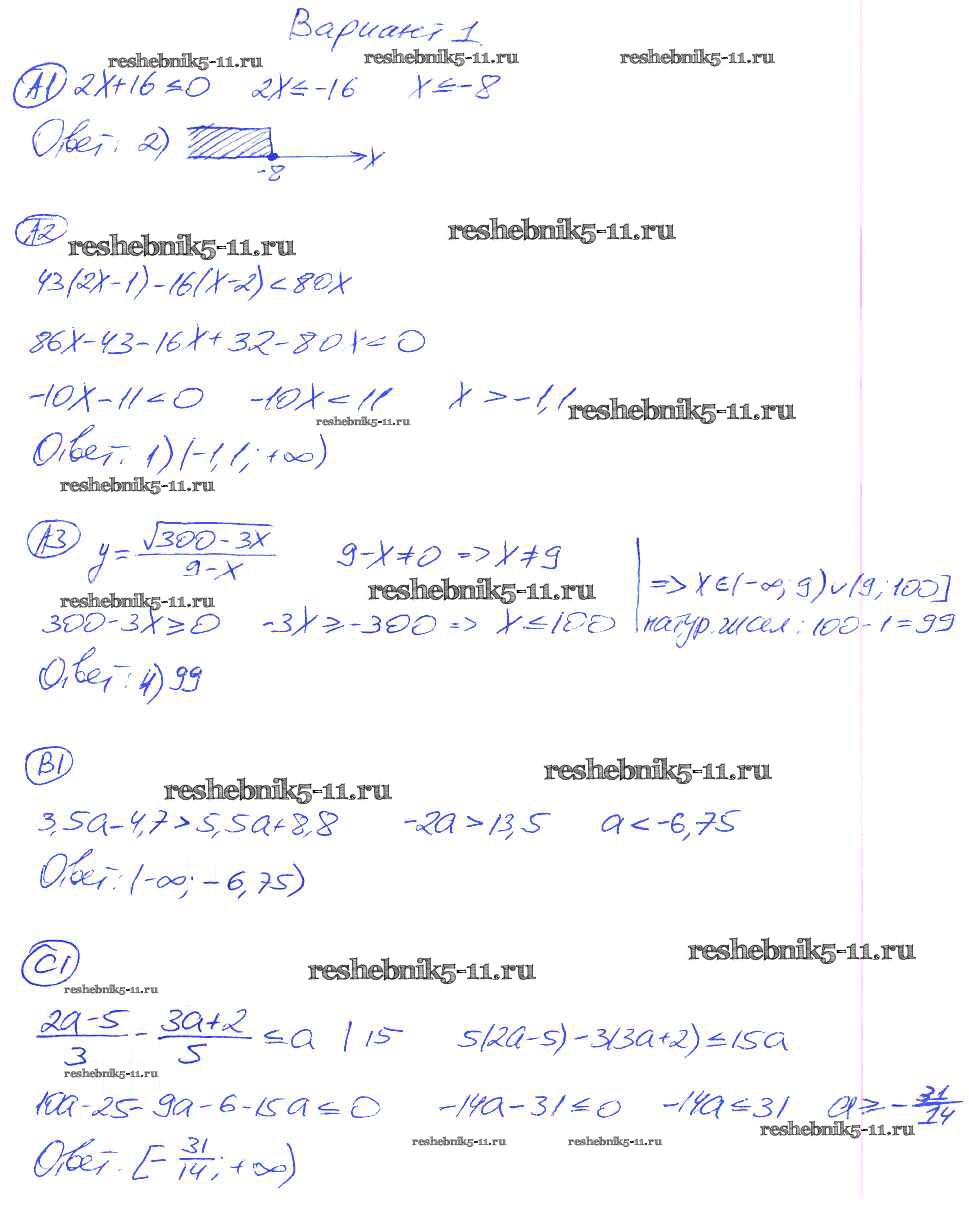 Вариант 1
reshebnik5-11.ru reshebnik5-11.ru reshebnik5-11.ru
А1 2x+16≤0 2x≤-16 x≤-8
Ответ: 2) -8 x
А2
reshebnik5-11.ru reshebnik5-11.ru
43(2x-1)-16(x-2)<80x
86x-43-16x+32-80x<0
-10x-11<0 -10x<11 x>-1,1
reshebnik5-11.ru reshebnik5-11.ru
Ответ: 1) (-1,1; +∞)
reshebnik5-11.ru
А3 y=√(300-3x)/(9-x) 9-x≠0 => x≠9 | => x∈(-∞; 9)∪(9; 100]
reshebnik5-11.ru reshebnik5-11.ru
300-3x≥0 -3x≥-300 => x≤100 | натур. чисел: 100-1=99
Ответ: 4) 99
В1
reshebnik5-11.ru reshebnik5-11.ru
3,5a-4,7>5,5a+8,8 -2a>13,5 a<-6,75
Ответ: (-∞; -6,75)
С1
reshebnik5-11.ru reshebnik5-11.ru
reshebnik5-11.ru
(2a-5)/3 - (3a+2)/5 ≤a |15 5(2a-5)-3(3a+2)≤15a
reshebnik5-11.ru
10a-25-9a-6-15a≤0 -14a-31≤0 -14a≤31 a≥-31/14
reshebnik5-11.ru reshebnik5-11.ru reshebnik5-11.ru
Ответ: [-31/14; +∞)